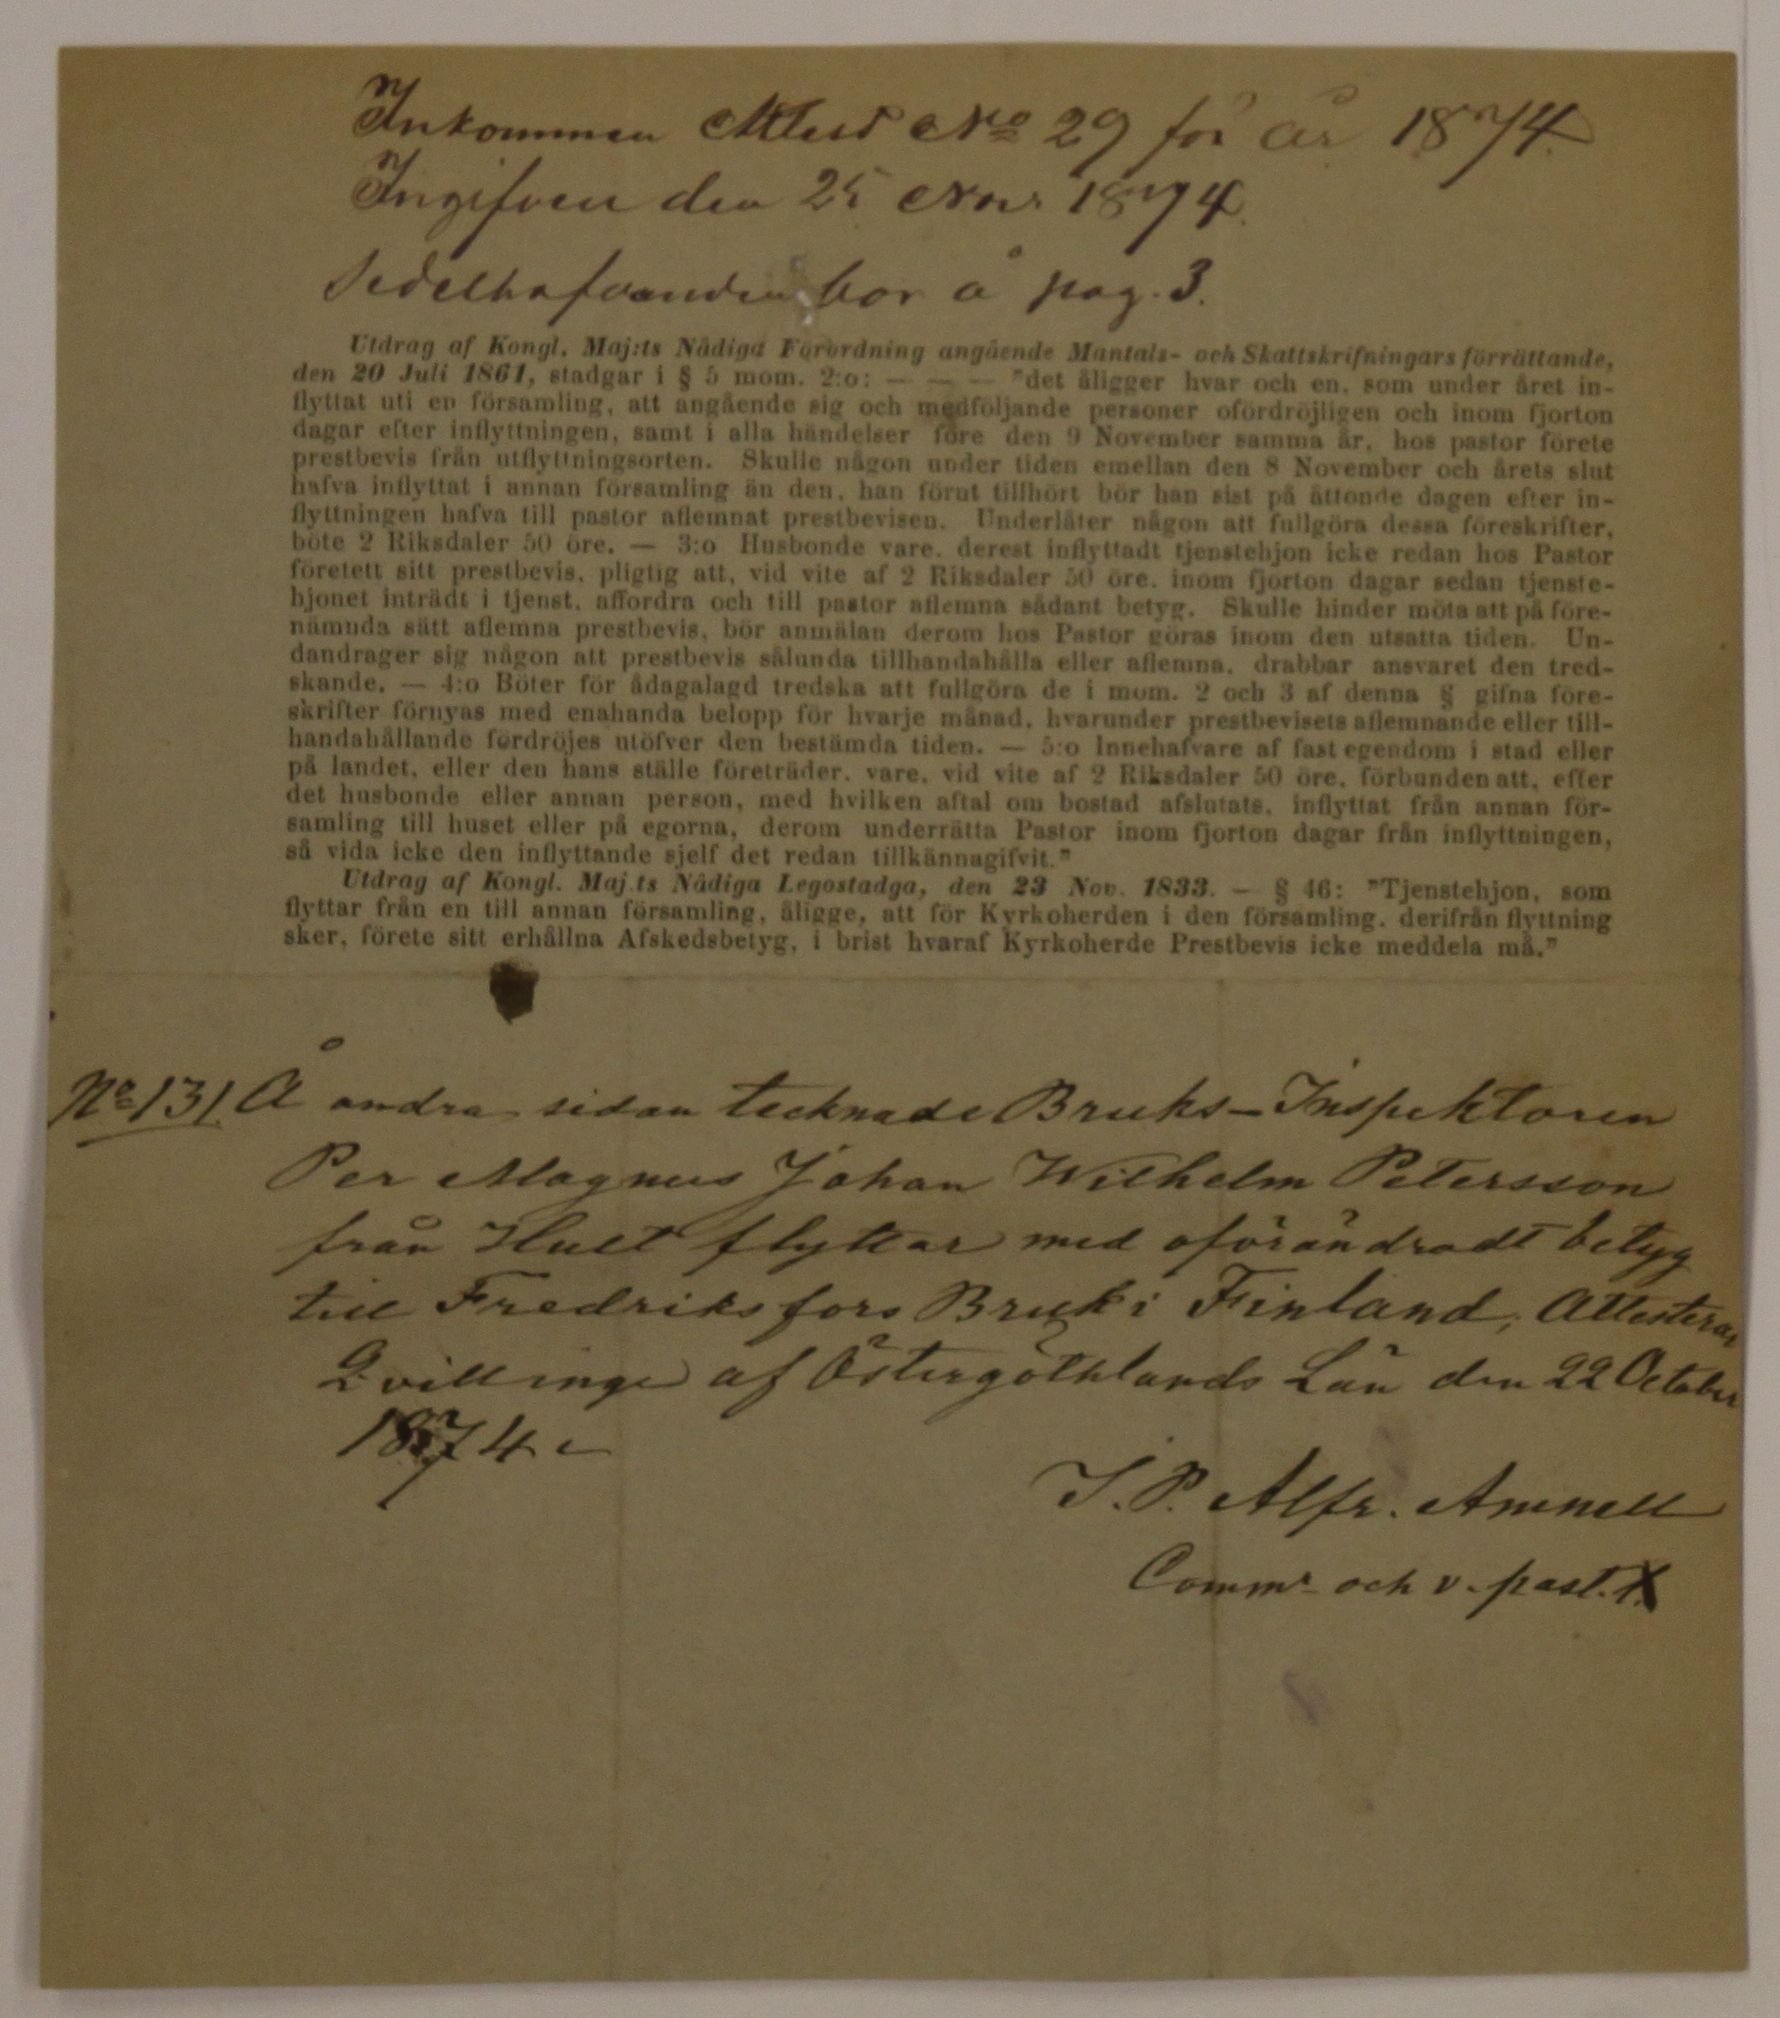 Inkommen Attest No 29 för år 1874.
Ingifven den 25 Nov. 1874.
Sedelhafvanden bor å pag. 3.
Utdrag af Kongl. Maj:ts Nådiga Förordning angående Mantals- och Skattskrifningars förrättande,
den 20 Juli 1861, stadgar i § 5 mom. 2:o: — — — "det åligger hvar och en, som under året in-
flyttat uti en församling, att angående sig och medföljande personer ofördröjligen och inom fjorton
dagar efter inflyttningen, samt i alla händelser före den 9 November samma år, hos pastor förete
prestbevis från utflyttningsorten. Skulle någon under tiden emellan den 8 November och årets slut
hafva inflyttat i annan församling än den, han förut tillhört bör han sist på åttonde dagen efter in-
flyttningen hafva till pastor aflemnat prestbevisen. Underlåter någon att fullgöra dessa föreskrifter,
böte 2 Riksdaler 50 öre. — 3:o Husbonde vare, derest inflyttadt tjenstehjon icke redan hos Pastor
företett sitt prestbevis, pligtig att, vid vite af 2 Riksdaler 50 öre, inom fjorton dagar sedan tjenste-
hjonet inträdt i tjenst, affordra och till pastor aflemna sådant betyg. Skulle hinder möta att på före-
nämnda sätt aflemna prestbevis, bör anmälan derom hos Pastor göras inom den utsatta tiden. Un-
dandrager sig någon att prestbevis sålunda tillhandahålla eller aflemna, drabbar ansvaret den tred-
skande. — 4:o Böter för ådagalagd tredska att fullgöra de i mom. 2 och 3 af denna § gifna före-
skrifter förnyas med enahanda belopp för hvarje månad, hvarunder prestbevisets aflemnande eller till-
handahållande fördröjes utöfver den bestämda tiden. — 5:o Innehafvare af fast egendom i stad eller
på landet, eller den hans ställe företräder, vare, vid vite af 2 Riksdaler 50 öre, förbunden att, efter
det husbonde eller annan person, med hvilken aftal om bostad afslutats, inflyttat från annan för-
samling till huset eller på egorna, derom underrätta Pastor inom fjorton dagar från inflyttningen,
så vida icke den inflyttande sjelf det redan tillkännagifvit."
Utdrag af Kongl. Maj:ts Nådiga Legostadga, den 23 Nov. 1833. — § 46: "Tjenstehjon, som
flyttar från en till annan församling, åligge, att för Kyrkoherden i den församling, derifrån flyttning
sker, förete sitt erhållna Afskedsbetyg, i brist hvaraf Kyrkoherde Prestbevis icke meddela må."
No 131. Å andra sidan tecknade Bruks-Inspektoren
Per Magnus Johan Wilhelm Petersson
från Hult flyttar med oförändradt betyg
till Fredriksfors Bruk i Finland, Attesterar
Qvillinge af Östergöthlands Län den 22 October
1874
J. P. Alfr. Ammell
Commr och v. past.